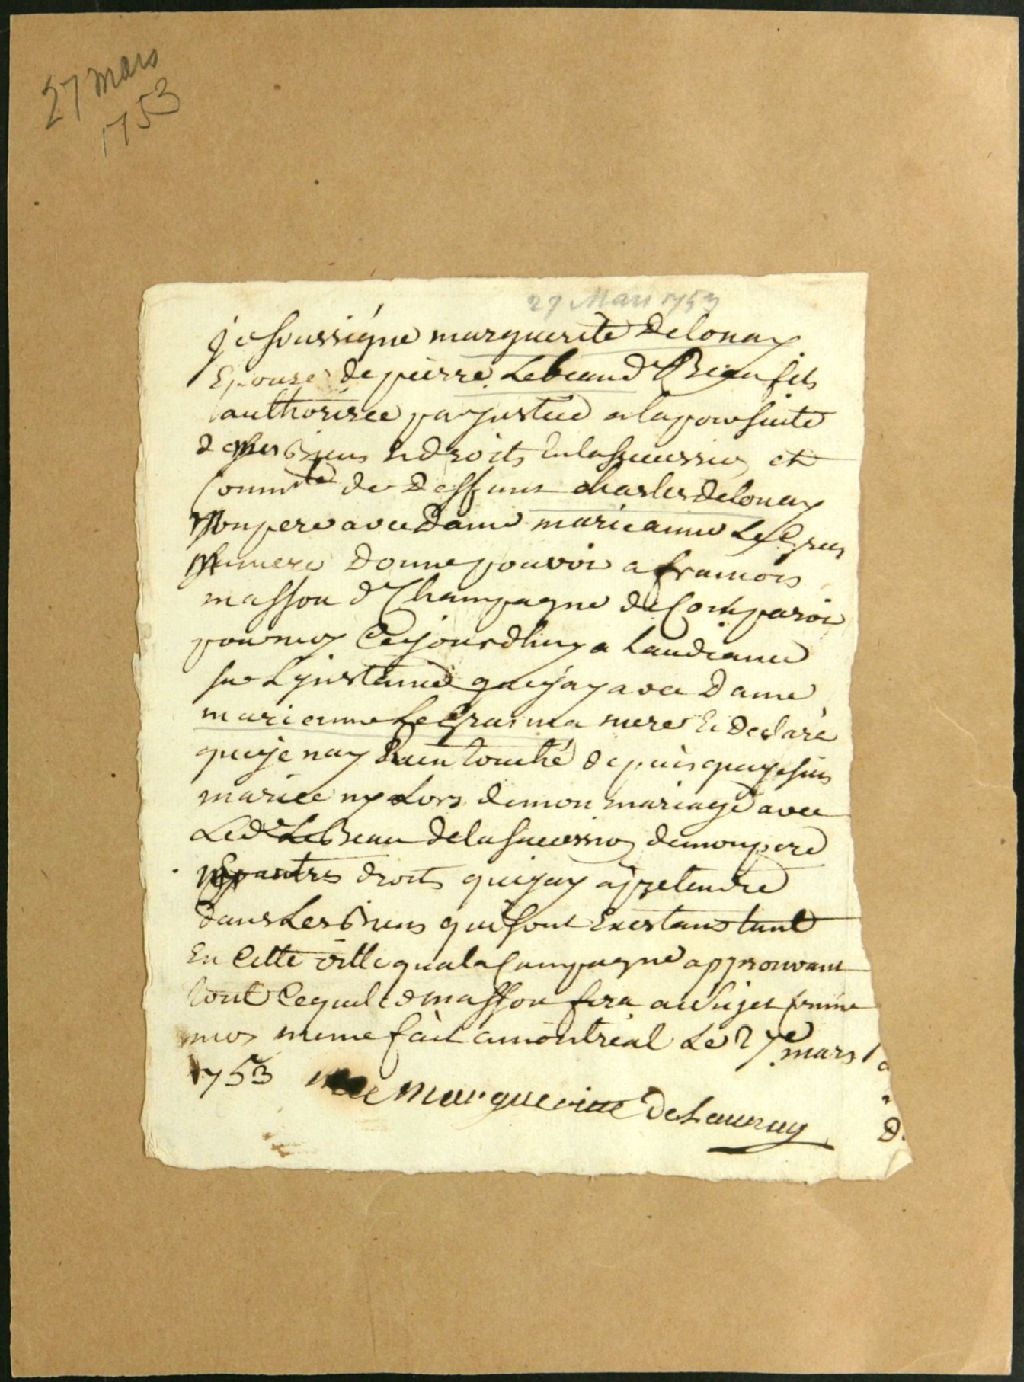 27 mars
1753
27 Mars 1753
je soussigne marguerite delonay
Epouse de pierre Lebeau dt Beau fils
authorisée par justice a la poursuite
de mes Biens & droits En la succession et
Commté de deffunt charles delonay
Mon pere avec Dame marie anne Le Gras
Ma mere donne pouvoir a francois
masson dt Champagne de Comparoir
pour moy Ce jourdhuy a Laudiance
sur L'instance que j'ay avec Dame
marie anne Le Gras ma mere Et declare
que je nay Rien touché depuis que je suis
mariée ny Lors de mon mariage avec
Le dt Le Beau de la succession de mon pere
droits que j'ay a pretendre
dans Les Biens qui sont Existans tant
En Cette ville qua la Campagne approuvant
tout Ce que Le d masson fera au sujet comme
moy meme fait a montréal Le 27e mars
1753 Margueritte de Launay